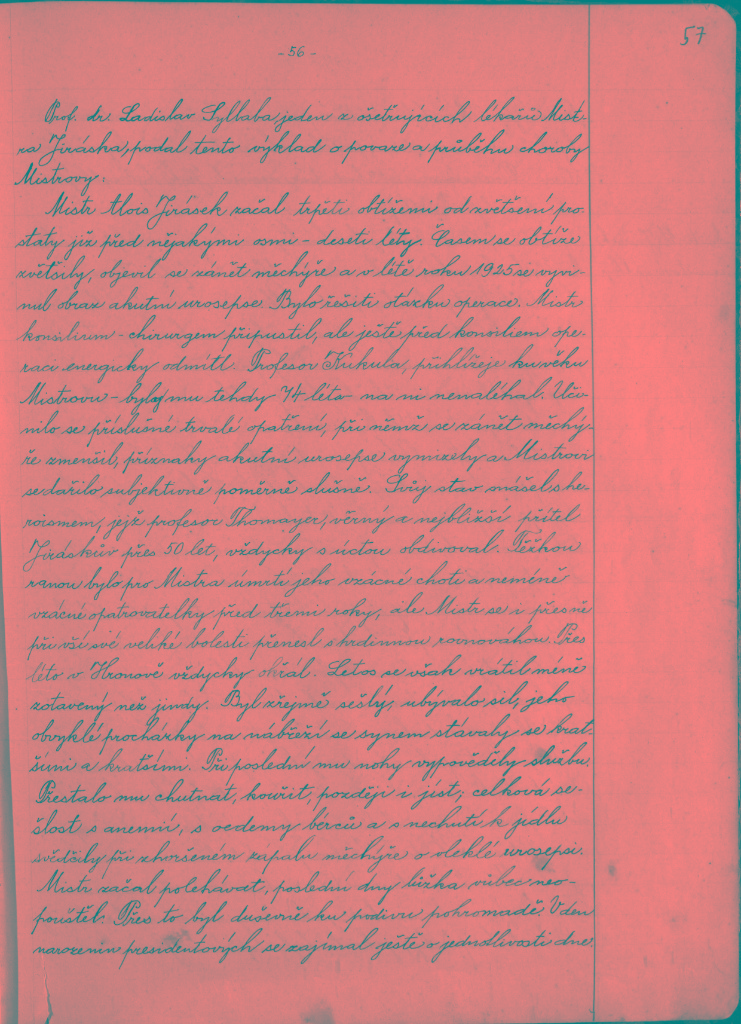 57
- 56 -
Prof. dr. Ladislav Syllaba, jeden z ošetřujících lékařů Mist-
ra Jiráska, podal tento výklad o povaze a průběhu choroby
Mistrovy:
Mistr Alois Jirásek začal trpěti obtížemi od zvětšení pro-
staty již před nějakými osmi - deseti léty. Časem se obtíže
zvětšily, objevil se zánět měchýře a v létě roku 1925 se vyvi-
nul obraz akutní urosepse. Bylo řešiti otázku operace. Mistr
konsilium - chirurgem připustil, ale ještě před konsiliem ope-
raci energicky odmítl. Profesor Kukula, přihlížeje ku věku
Mistrovu - bylo mu tehdy 74 léta - na ni nenaléhal. Uči-
nilo se příslušné trvalé opatření, při němž se zánět měchý-
ře zmenšil, příznaky akutní urosepse vymizely a Mistrovi
se dařilo subjektivně poměrně slušně. Svůj stav snášel s he-
roismem, jejž profesor Thomayer, věrný a nejbližší přítel
Jiráskův přes 50 let, vždycky s úctou obdivoval. Těžkou
ranou bylo pro Mistra úmrtí jeho vzácné choti a neméně
vzácné opatrovatelky před třemi roky, ale Mistr se i přes ně
při vší své veliké bolesti přenesl s hrdinnou rovnováhou. Přes
léto v Hronově vždycky okřál. Letos se však vrátil méně
zotavený než jindy. Byl zřejmě sešlý, ubývalo sil, jeho
obvyklé procházky na nábřeží se synem stávaly se krat-
šími a kratšími. Při poslední mu nohy vypověděly službu.
Přestalo mu chutnat, kouřit, později i jíst; celková se-
šlost s anemií, s oedemy bérců a s nechutí k jídlu
svědčily při zhoršeném zápalu měchýře o vleklé urosepsi.
Mistr začal polehávat, poslední dny lůžka vůbec neo-
pouštěl. Přes to byl duševně ku podivu pohromadě. V den
narozenin presidentových se zajímal ještě o jednotlivosti dne